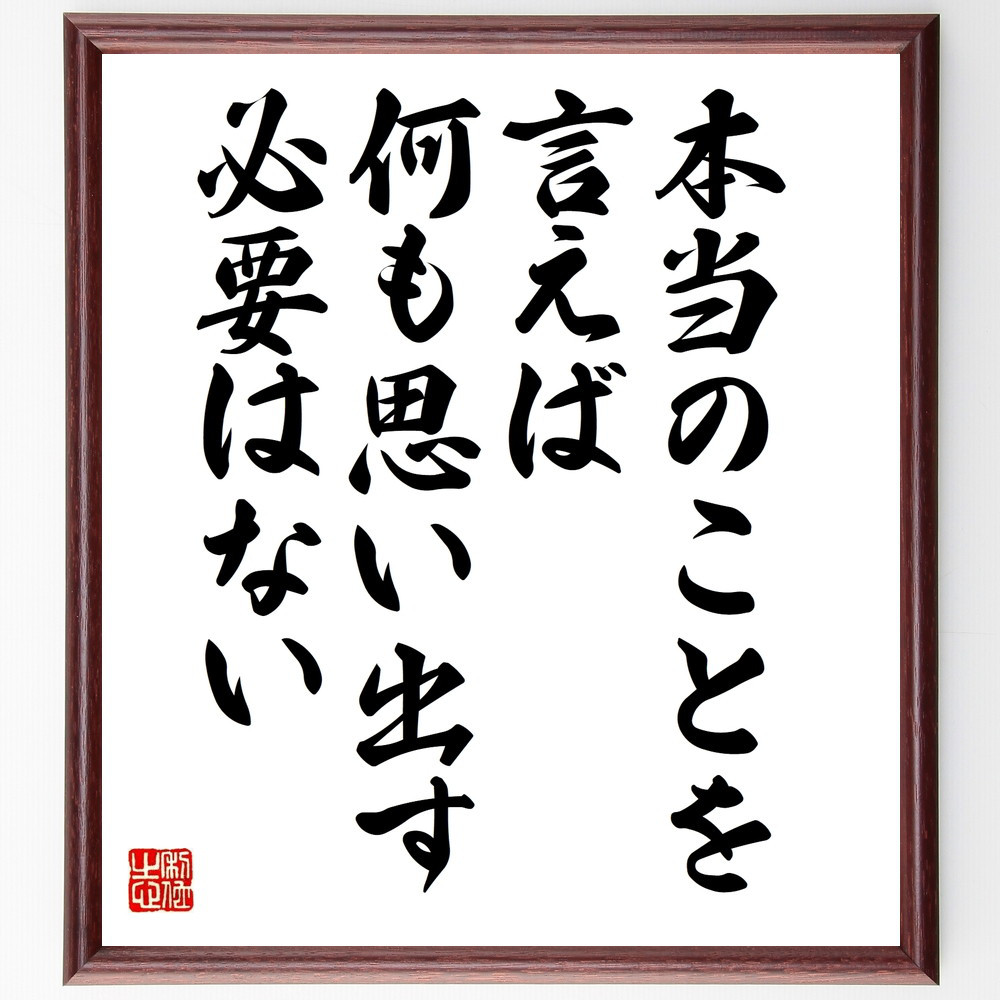 本当のことを
言えば
何も思い出す
必要はない